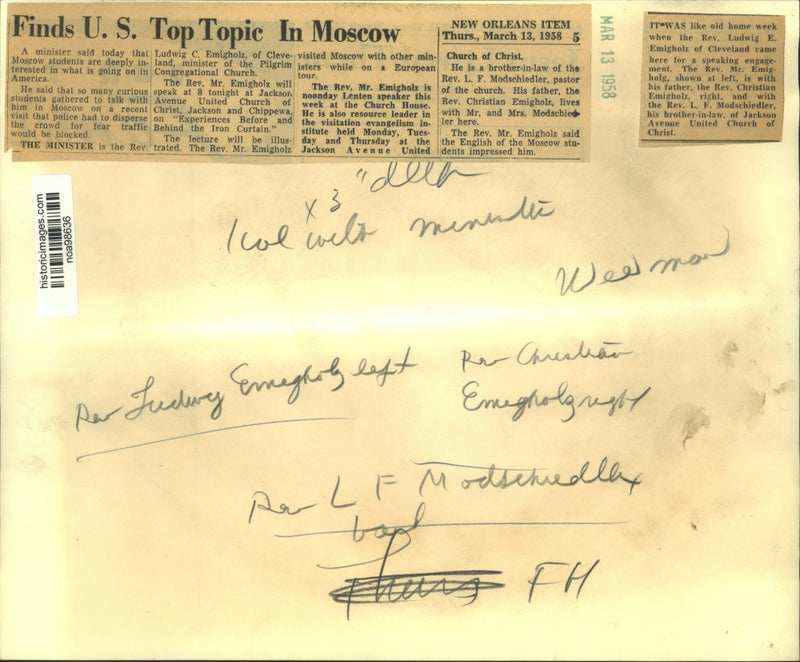 Finds U. S. Top Topic In Moscow
NEW ORLEANS ITEM
Thurs., March 13, 1958 5
A minister said today that
Moscow students are deeply in-
terested in what is going on in
America.
He said that so many curious
students gathered to talk with
him in Moscow on a recent
visit that police had to disperse
the crowd for fear traffic
would be blocked.
THE MINISTER is the Rev.
Ludwig C. Emigholz, of Cleve-
land, minister of the Pilgrim
Congregational Church.
The Rev. Mr. Emigholz will
speak at 8 tonight at Jackson
Avenue United Church of
Christ, Jackson and Chippewa,
on "Experiences Before and
Behind the Iron Curtain."
The lecture will be illus-
trated. The Rev. Mr. Emigholz
visited Moscow with other min-
isters while on a European
tour.
The Rev. Mr. Emigholz is
noonday Lenten speaker this
week at the Church House.
He is also resource leader in
the visitation evangelism in-
stitute held Monday, Tues-
day and Thursday at the
Jackson Avenue United
Church of Christ.
He is a brother-in-law of the
Rev. L. F. Modschiedler, pastor
of the church. His father, the
Rev. Christian Emigholz, lives
with Mr. and Mrs. Modschied-
ler here.
The Rev. Mr. Emigholz said
the English of the Moscow stu-
dents impressed him.
MAR 13 1958
IT WAS like old home week
when the Rev. Ludwig E.
Emigholz of Cleveland came
here for a speaking engage-
ment. The Rev. Mr. Emig-
holz, shown at left, is with
his father, the Rev. Christian
Emigholz, right, and with
the Rev. L. F. Modschiedler,
his brother-in-law, of Jackson
Avenue United Church of
Christ.
historicimages.com
noa98636
x 3
1 col
Rev Ludwig Emegholz left
Rev Christian
Emegholz right
Rev L F Modschiedler
back
Thurs FH